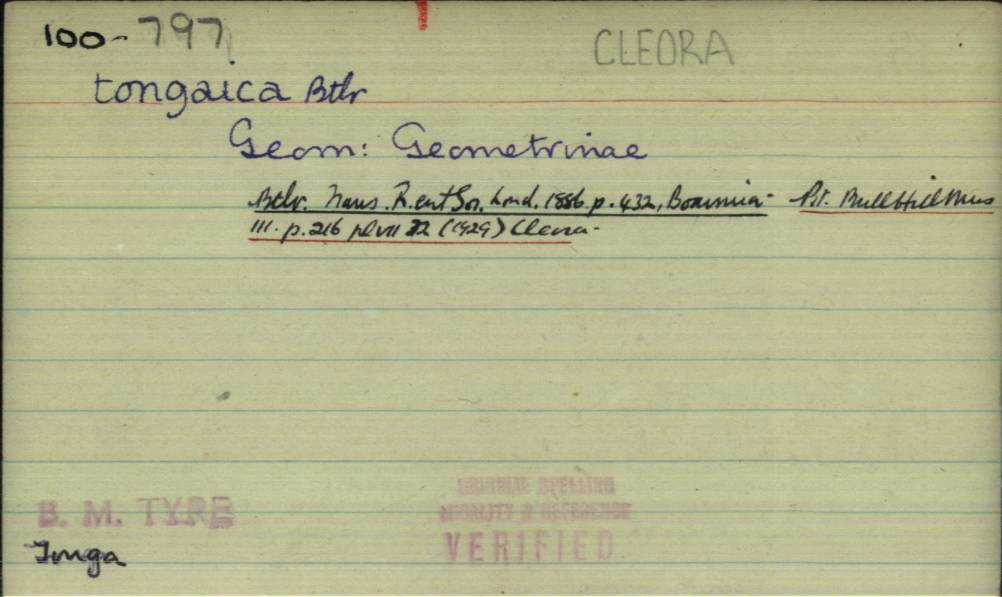 100-797
CLEORA
tongaica Btlr
Geom: Geometrinae
Btlr. Trans. R. ent Soc. Lond. 1886 p. 432, Boarmia- Pr. Bull Hill Mus
III. p. 216 pl VII 22 (1929) Cleora-
B. M. TYPE
ORIGINAL SPELLING
LOCALITY & REFERENCE
VERIFIED
Tonga